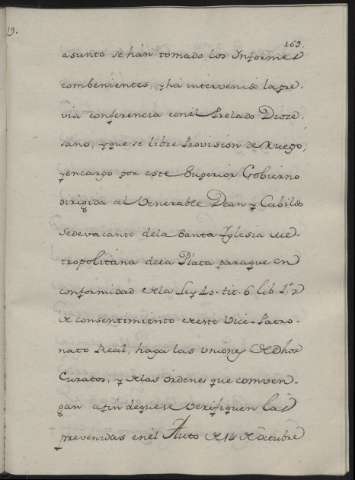 19.
163.
asunto se hán tomado los Informes
combenientes, y há intervenido la pre-
via conferencia con el Prelado Dioce-
sano, y que se libre Provision de Ruego,
y encargo por este Superior Gobierno
dirigida al Venerable Dean y Cabildo
Sedevacante de la Santa Iglesia Me-
tropolitana de la Plata paraque en
conformidad de la Ley 40. tit. 6. Lib. 1.º
de consentimiento de este Vice-Patro-
nato Real, haga las Uniones de dhos
Curatos, y de las ordenes que comven-
gan afin deque se verifiquen las
prevenidas en el Auto de 14 de Octubre